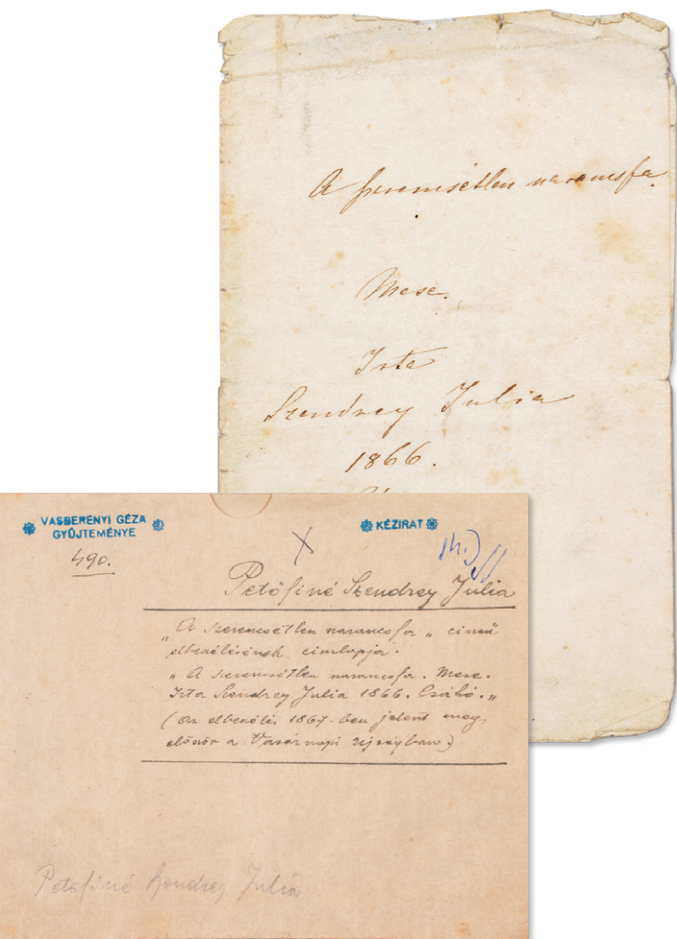 A szerencsétlen narancsfa.
Mese.
Irta
Szendrey Julia
1866.
VASBERÉNYI GÉZA
GYŰJTEMÉNYE
KÉZIRAT
490.
X
Petőfiné Szendrey Julia
"A szerencsétlen narancsfa" című
elbeszélésének cimlapja.
"A szerencsétlen narancsfa. Mese.
Irta Szendrey Julia 1866. Csákó."
(Az elbeszélés 1867-ben jelent meg,
először a Vasárnapi Ujságban)
Petőfiné Szendrey Julia